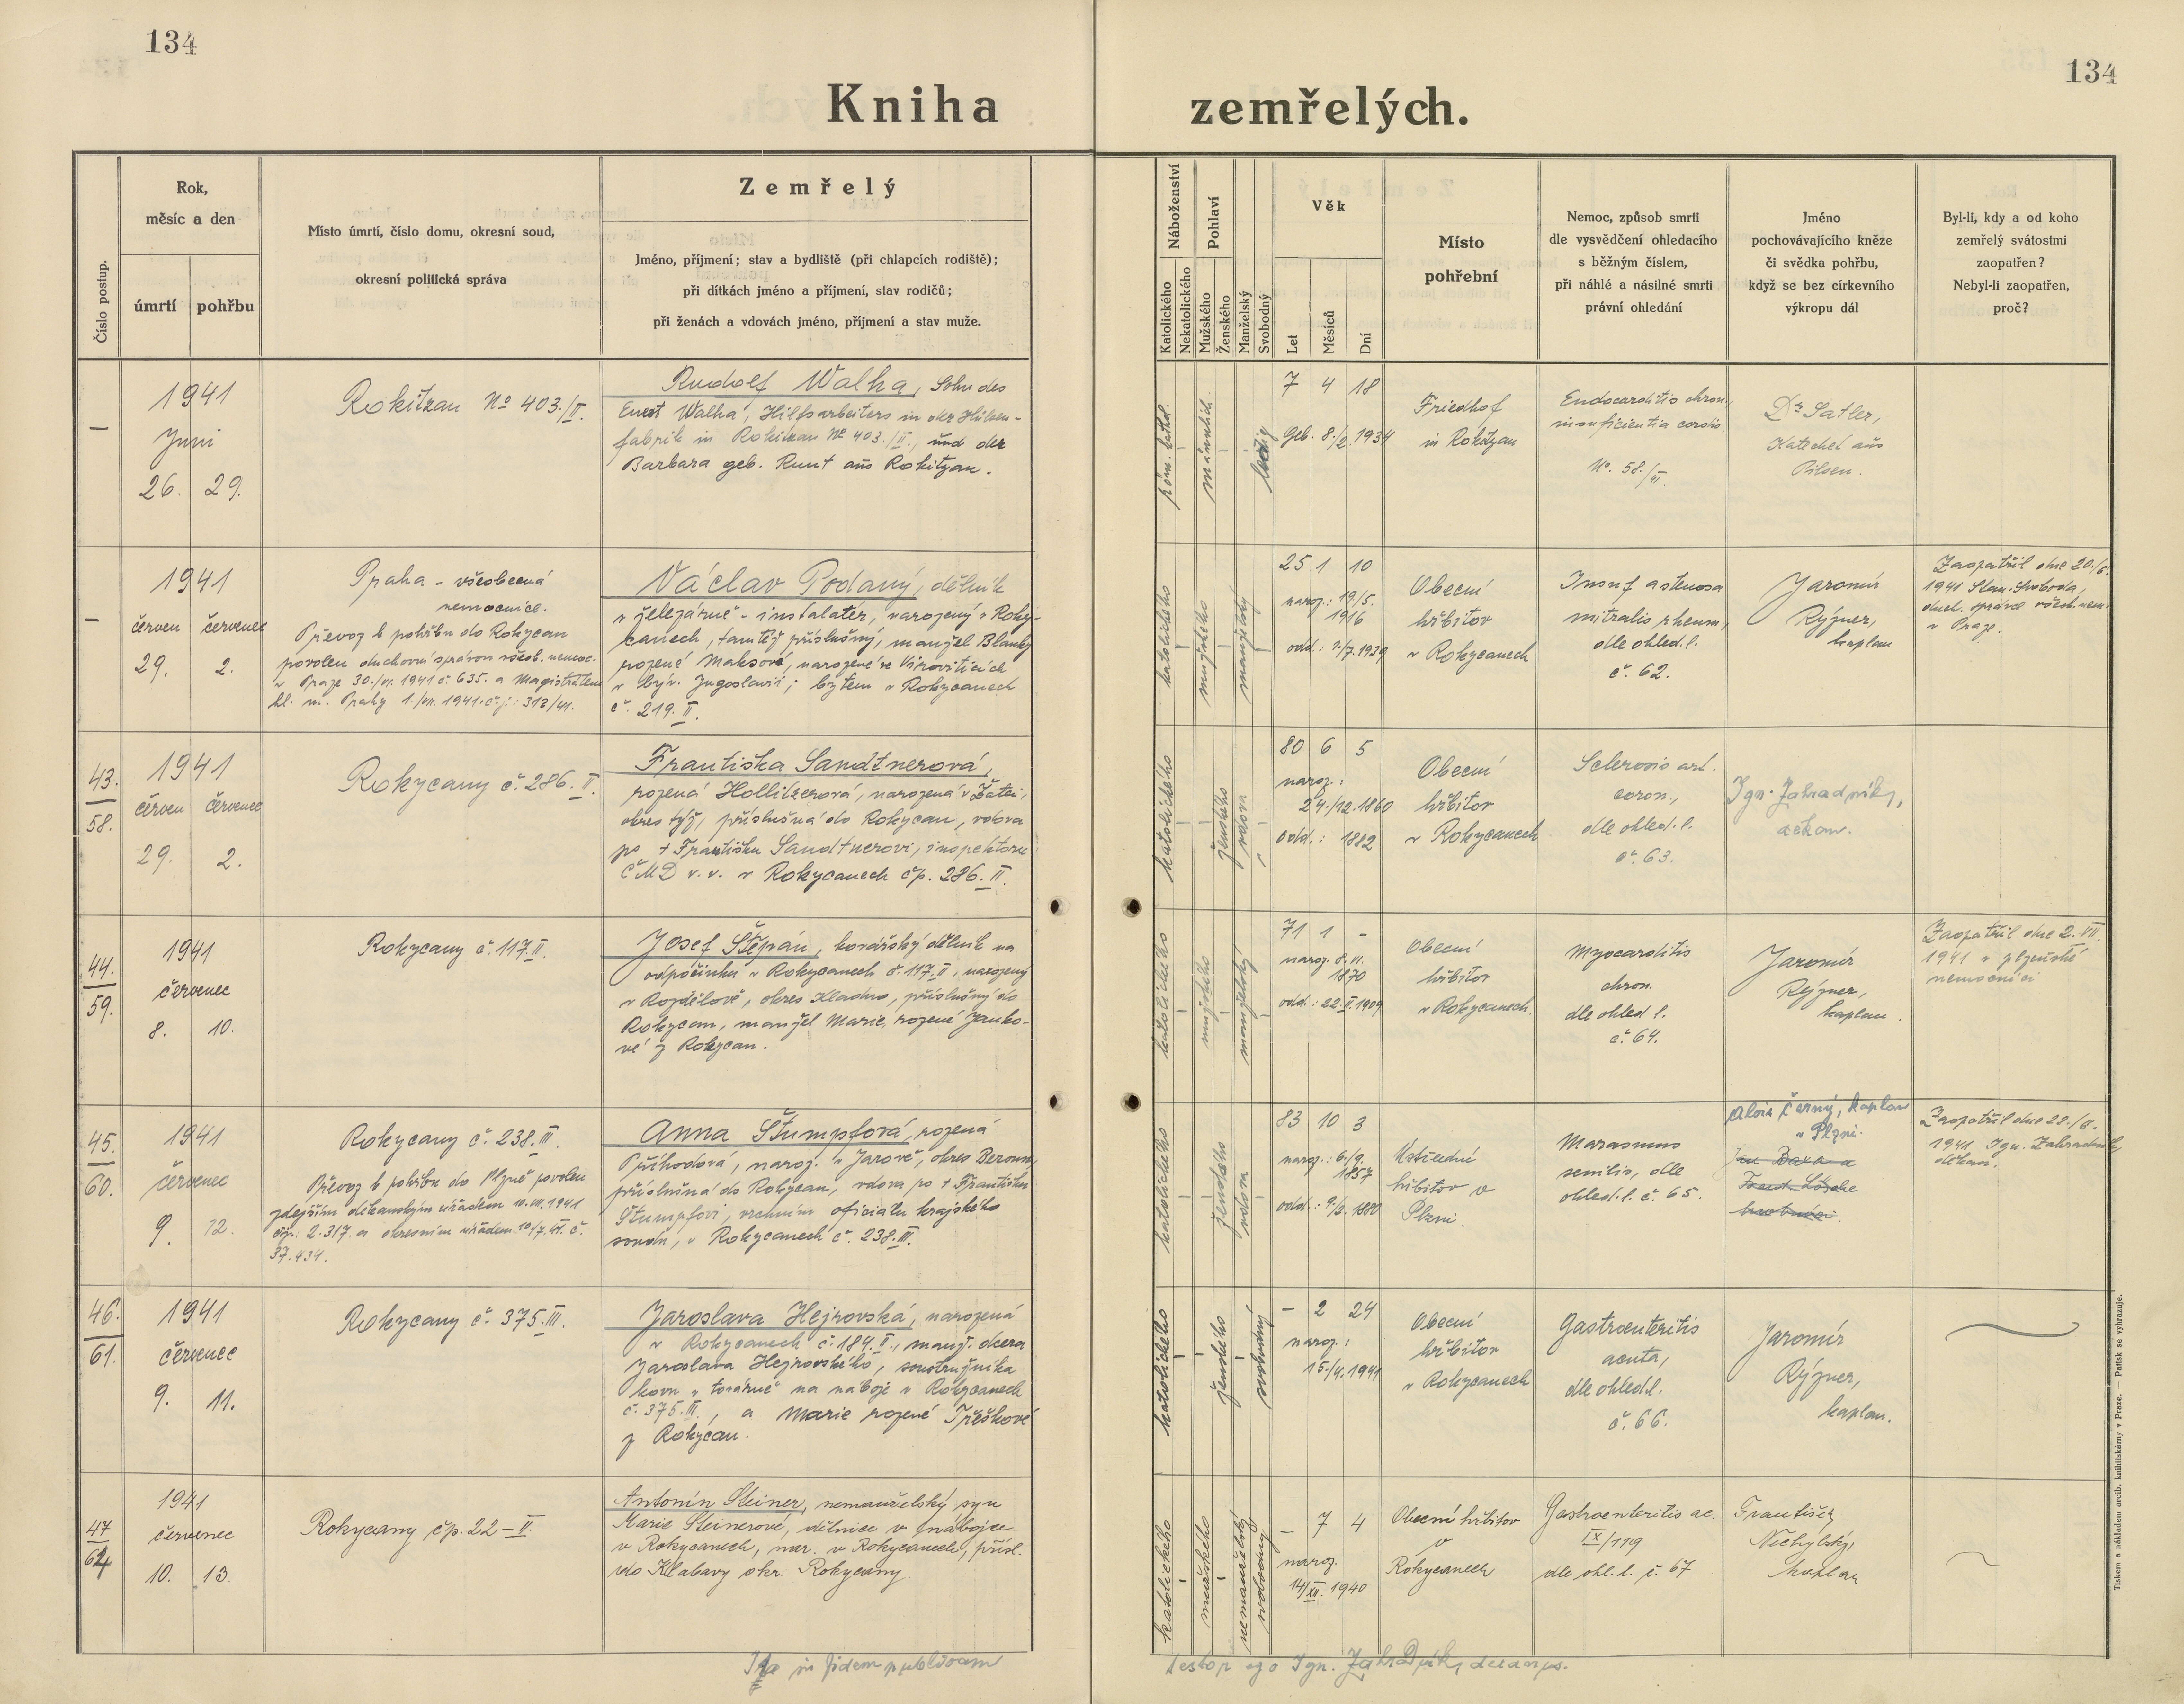 134
134
Kniha zemřelých.
Číslo postup.
Rok,
měsíc a den
úmrtí
pohřbu
Místo úmrtí, číslo domu, okresní soud,
okresní politická správa
Zemřelý
Jméno, příjmení; stav a bydliště (při chlapcích rodiště);
při dítkách jméno a příjmení, stav rodičů;
při ženách a vdovách jméno, příjmení a stav muže.
Náboženství
Katolického
Nekatolického
Pohlaví
Mužského
Ženského
Manželský
Svobodný
Věk
Let
Měsíců
Dní
Místo
pohřební
Nemoc, způsob smrti
dle vysvědčení ohledacího
s běžným číslem,
při náhlé a násilné smrti
právní ohledání
Jméno
pochovávajícího kněze
či svědka pohřbu,
když se bez církevního
výkropu dál
Byl-li, kdy a od koho
zemřelý svátostmi
zaopatřen?
Nebyl-li zaopatřen,
proč?
—
1941
Juni
26. 29.
Rokitzan No 403./II.
Rudolf Walha, Sohn des
Ernst Walha, Hilfsarbeiters in der Hülsen-
fabrik in Rokitzan No 403./II., und der
Barbara geb. Runt aus Rokitzan.
röm. kathol.
männlich.
ledig
7 4 18
geb. 8./2. 1934
Friedhof
in Rokitzan
Endocarditis chron.,
insuficientia cordis
No. 58./VI.
Dr. Satler,
Katechet aus
Pilsen.
—
1941
červen červenec
29. 2.
Praha - všeobecná
nemocnice.
Převoz k pohřbu do Rokycan
povolen duchovní správou všeob. nemoc.
v Praze 30./VI. 1941 č. 635. a Magistrátem
hl. m. Prahy 1./VII. 1941. č. j.: 313/41.
Václav Podaný, dělník
v železárně - instalatér, narozený v Roky-
canech, tamtéž příslušný, manžel Blanky
rozené Maksové, narozené ve Viroviticích
v býv. Jugoslavii; bytem v Rokycanech
č. 219. II.
katolického
mužského
manželský
25 1 10
naroz.: 19/5.
1916
odd.: /7. 1939
Obecní
hřbitov
v Rokycanech
Insuf a stenosa
mitralis rheum,
dle ohled. l.
č. 62.
Jaromír
Rýzner,
kaplan
Zaopatřil dne 20./6.
1941 Stan. Svoboda,
duch. správce všeob. nem.
v Praze.
43.
58.
1941
červen červenec
29. 2.
Rokycany č. 286. II.
Františka Sandtnerová,
rozená Hollitzerová, narozená v Žatci,
okres týž, příslušná do Rokycan, vdova
po + Františku Sandtnerovi, inspektoru
ČMD v. v. v Rokycanech čp. 286. II.
katolického
ženského
vdova
80 6 5
naroz.:
24./12. 1860
odd.: 1882
Obecní
hřbitov
v Rokycanech
Sclerosis art.
coron.,
dle ohled. l.
č. 63.
Ign. Zahradník,
děkan.
44.
59.
1941
červenec
8. 10.
Rokycany č. 117. II.
Josef Štěpán, kovářský dělník na
odpočinku v Rokycanech č. 117. II, narozený
v Rozdělově, okres Kladno, příslušný do
Rokycan, manžel Marie, rozené Janko-
vé z Rokycan.
katolického
mužského
manželský
71 1 -
naroz. 8.
1870
odd.: 22. II. 1909
Obecní
hřbitov
v Rokycanech.
Myocarditis
chron.
dle ohled l.
č. 64.
Jaromír
Rýzner,
kaplan.
Zaopatřil dne 2. VII.
1941 v plzeňské
nemocnici
45.
60.
1941
červenec
9. 12.
Rokycany č. 238. III.
Převoz k pohřbu do Plzně povolen
zdejším děkanským úřadem 10. VII. 1941
čj.: 2.317. a okresním úřadem 10/7. 41. č.
37.434.
Anna Štumpfová, rozená
Příhodová, naroz. v Jarově, okres Beroun,
příslušná do Rokycan, vdova po + Františku
Štumpfovi, vrchním oficiálu krajského
soudu, v Rokycanech č. 238. III.
katolického
ženského
vdova
83 10 3
naroz.: 6./9.
1857
odd.: 9/2. 1880
Ústřední
hřbitov v
Plzni.
Marasmus
senilis, dle
ohled. l. č. 65.
Alois Černý, kaplan
v Plzni.
Zaopatřil dne 22./6.
1941 Ign. Zahradník,
děkan.
46.
61.
1941
červenec
9. 11.
Rokycany č. 375. III.
Jaroslava Hejrovská, narozená
v Rokycanech č. 184. II., manž. dcera
Jaroslava Hejrovského, soustružníka
kovu v továrně na náboje v Rokycanech
č. 375. III., a Marie rozené Třeškové
z Rokycan.
katolického
ženského
svobodný
- 2 24
naroz.:
15./4. 1941
Obecní
hřbitov
v Rokycanech
Gastroenteritis
acuta,
dle ohled. l.
č. 66.
Jaromír
Rýzner,
kaplan.
47
62
1941
červenec
10. 13.
Rokycany čp. 22 - II.
Antonín Steiner, nemanželský syn
Marie Steinerové, dělnice v nábojce
v Rokycanech, nar. v Rokycanech, přísl.
do Klabavy okr. Rokycany.
katolického
mužského
nemanželský
svobodný
- 7 4
naroz.
14/XII. 1940
Obecní hřbitov
v
Rokycanech
Gastroenteritis ac.
IX/119
dle ohl. l. č. 67
František
Nechylský,
kaplan
in fidem publicam
testor ego Ign. Zahradník, decanus.
Tiskem a nákladem arcib. knihtiskárny v Praze. — Patisk se vyhrazuje.